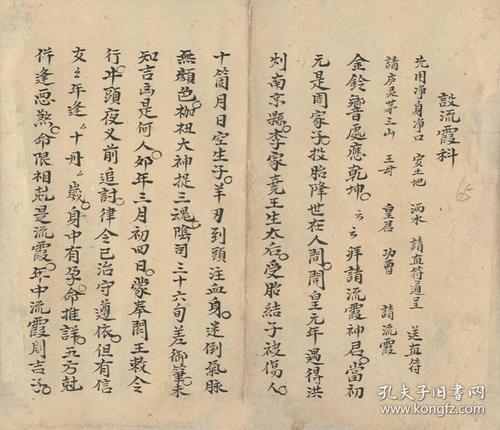 設流霞科
先用净身净口 安土地 洒水 請直符道呈 送直符
請庐灵茅三山 王母 皇君 功曹 請流霞
金鈴響處應乾坤 云云 拜請流霞神君 當初
元是周家子 投胎降世在人間 開皇元年遇得洪
州南京縣 李家堯王生太后 受胎結子被傷人
十箇月日空生子 羊刃到頭注血身 迷倒氣脉
無顔色 枷杻大神捉三魂 陰司三十六旬差御筆 未
知吉凶是何人 卯年三月初四日 蒙奉閻王敕令
行 牛頭夜叉前追討 律令已治守遵依 但有信
女云云年逢云十毋云歲 身中有孕命推詳 五方尅
併逢惡煞 命限相尅是流霞 年中流霞則吉子
65
孔夫子旧书网
www.kongfz.com